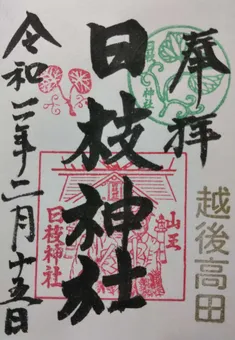 奉拝
越後高田
日枝神社
山王
日枝神社
令和二年二月十五日